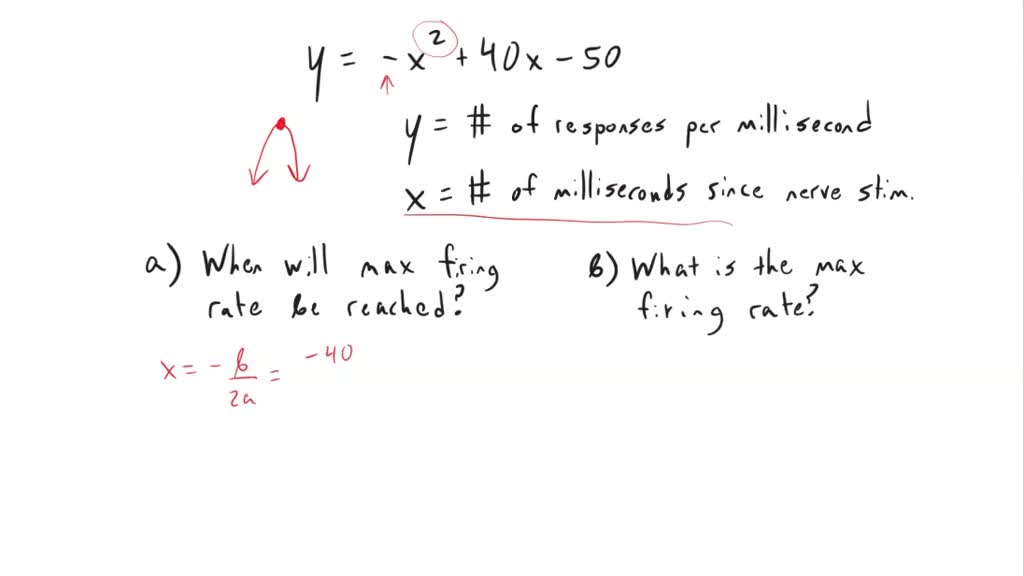 y = -x² + 40x - 50
y = # of responses per millisecond
x = # of milliseconds since nerve stim.
a) When will max firing rate be reached?
b) What is the max firing rate?
x = - b/2a = -40